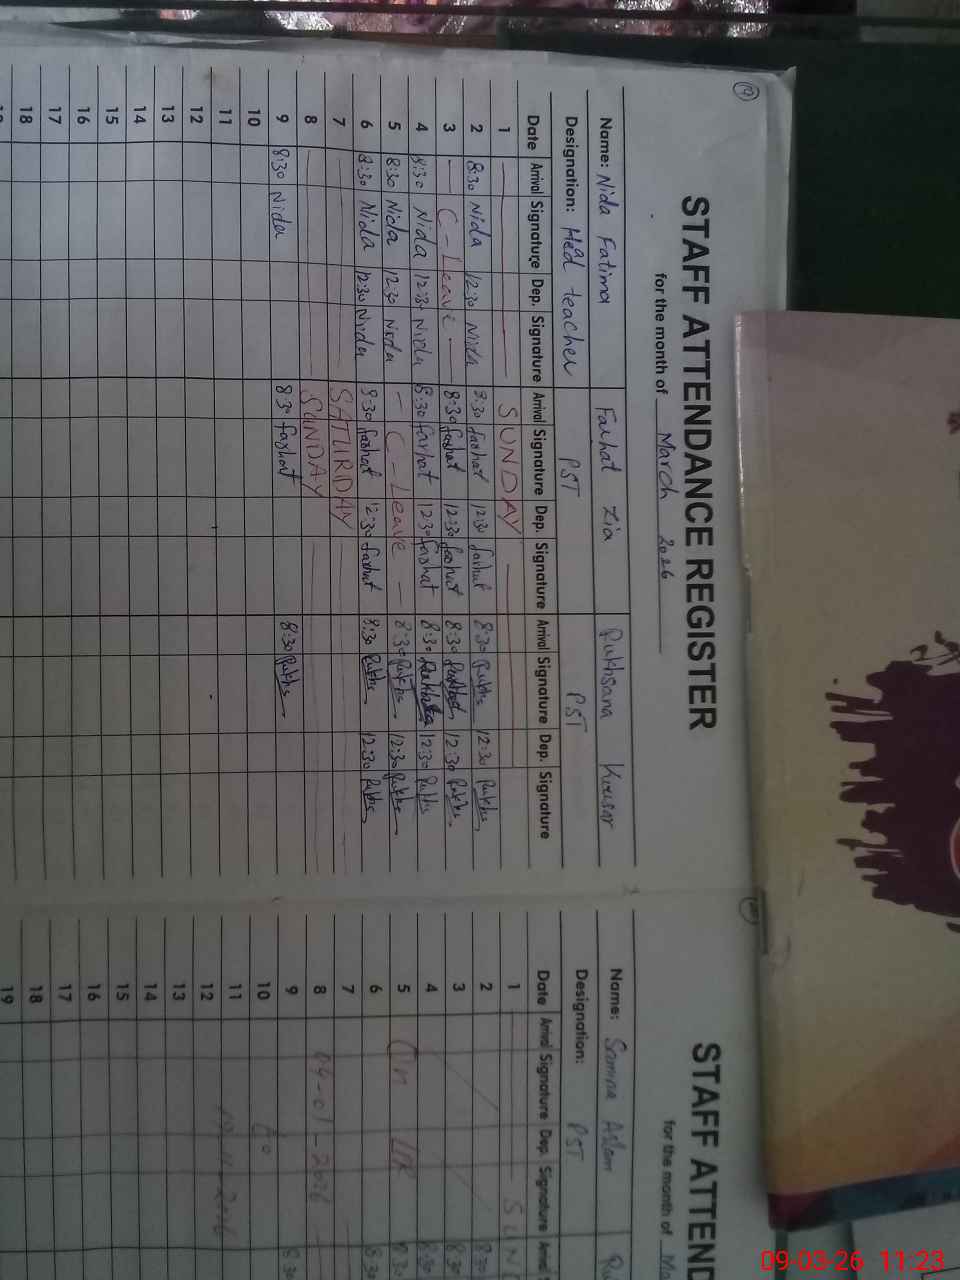 19
STAFF ATTENDANCE REGISTER
for the month of March 2026
Name: Nida Fatima Farhat Zia Rukhsana Kousar
Designation: Head teacher PST PST
Date Arrival Signature Dep. Signature Arrival Signature Dep. Signature Arrival Signature Dep. Signature
1 — SUNDAY —
2 8:30 Nida 12:30 Nida 8:30 farhat 12:30 farhat 8:30 Rukhs 12:30 Rukhs
3 — C - Leave — 8:30 farhat 12:30 farhat 8:30 12:30 Rukhs
4 8:30 Nida 12:30 Nida 8:30 farhat 12:30 farhat 8:30 12:30 Rukhs
5 8:30 Nida 12:30 Nida — C - Leave — 8:30 Rukhs 12:30 Rukhs
6 8:30 Nida 12:30 Nida 8:30 farhat 12:30 farhat 8:30 Rukhs 12:30 Rukhs
7 SATURDAY
8 SUNDAY
9 8:30 Nida 8:30 farhat 8:30 Rukhs
10
11
12
13
14
15
16
17
18
STAFF ATTEND
for the month of Ma
Name: Samina Aslam Ru
Designation: PST
Date Arrival Signature Dep. Signature Arrival S
1 — SUN
2 8:30
3 8:30
4 8:30
5 On 8:30
6 8:30
7
8 -01-2026
9 8:30
10 to
11
12
13
14
15
16
17
18
19
09-03-26 11:23